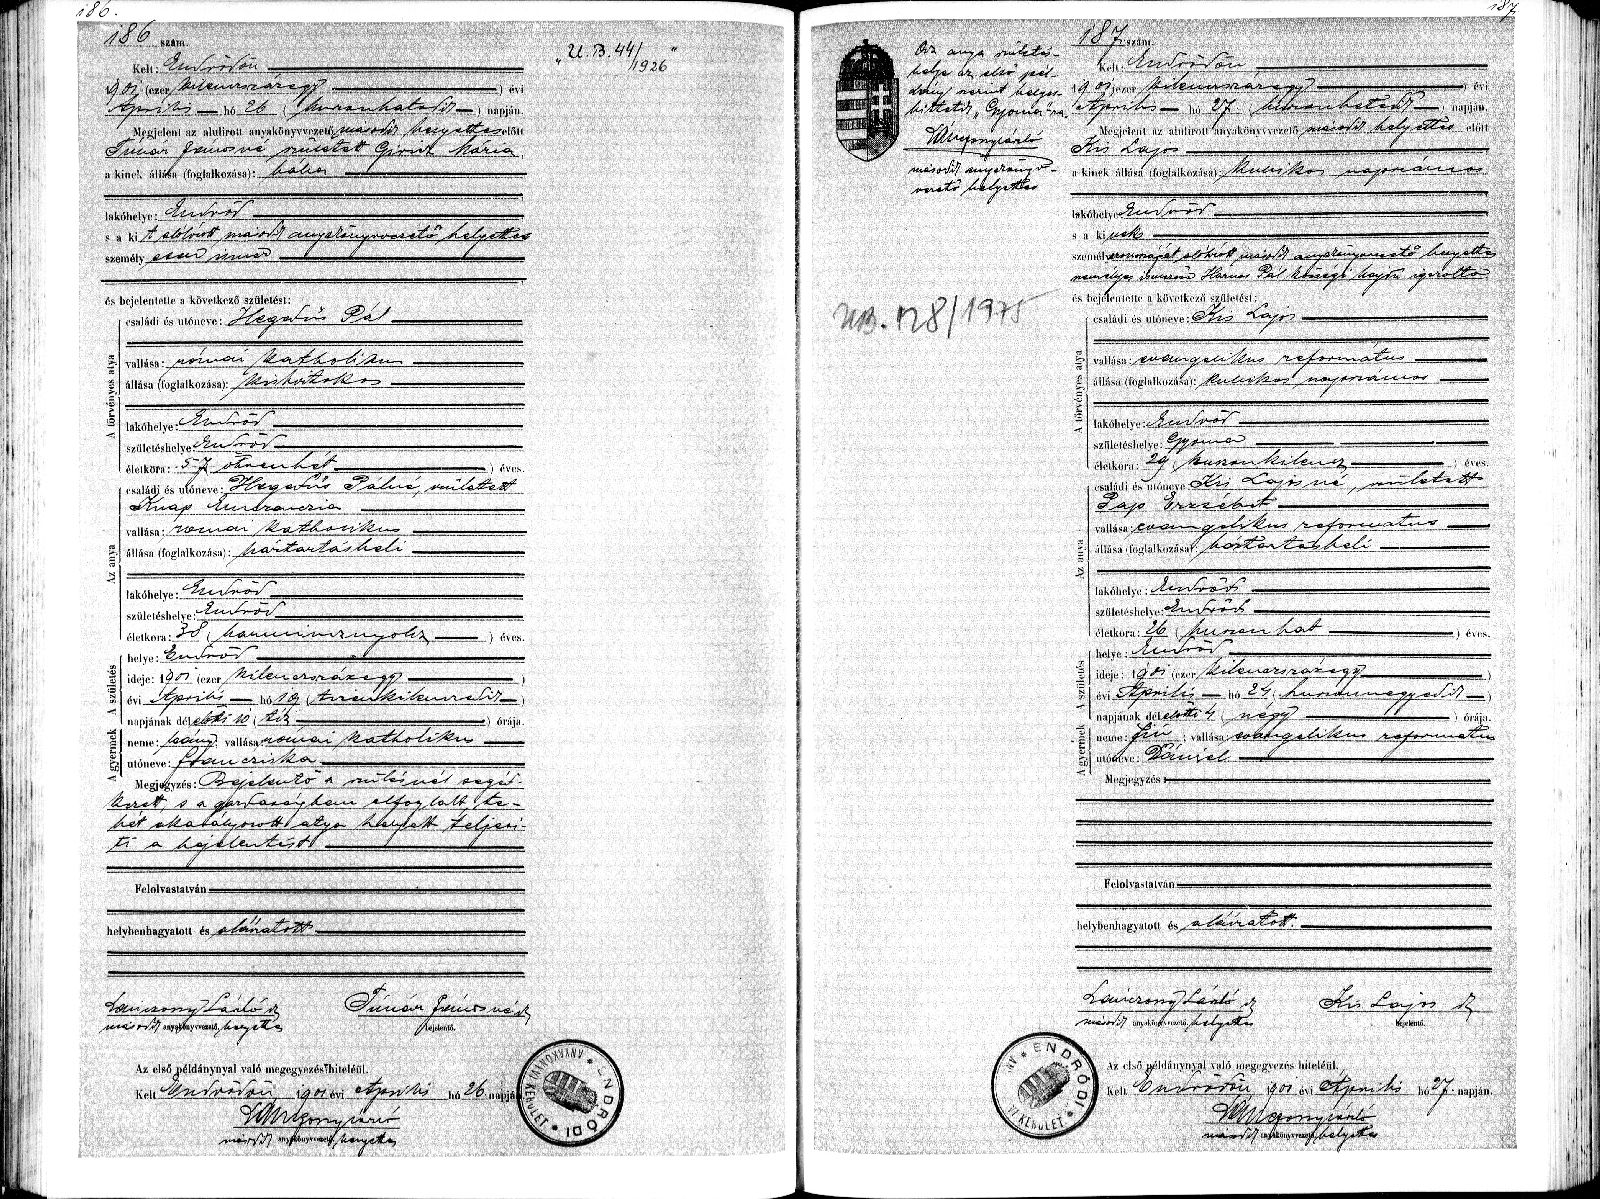 186.
186 szám.
"U. B. 44/1926"
Kelt: Endrődön
901 (ezer kilenczszázegy) évi
Április hó 26 (huszonhatodik) napján.
Megjelent az alulirott anyakönyvvezető második helyettes előtt
Tímár Jánosné született Mária
a kinek állása (foglalkozása): bába
lakóhelye: Endrőd
s a kit alólirott második anyakönyvvezető helyettes
személyesen ismer
és bejelentette a következő születést:
A törvényes atya
családi és utóneve: Hegedűs Pál
vallása: római katholikus
állása (foglalkozása): kisbirtokos
lakóhelye: Endrőd
születéshelye: Endrőd
életkora: 57 ötvenhét) éves.
Az anya
családi és utóneve: Hegedűs Pálné, született
Knap
vallása: romai katholikus
állása (foglalkozása): háztartásbeli
lakóhelye: Endrőd
születéshelye: Endrőd
életkora: 38 (harmincznyolcz) éves.
A születés
helye: Endrőd
ideje: 1901 (ezer kilenczszázegy)
évi Április hó 19 (tizenkilenczedik)
napjának délelőtti 10 (tíz) órája.
A gyermek
neme: leány; vallása: római katholikus
utóneve: Francziska
Megjegyzés: Bejelentő a szülésnél segéd-
kezett, s a gazdaságban elfoglalt, te-
hát akadályozott atya helyett teljesi-
ti a bejelentést
Felolvastatván
helybenhagyatott és aláiratott
Lanczony László sk Tímár Jánosné sk
második anyakönyvvezető helyettes bejelentő.
Az első példánynyal való megegyezés hiteléül.
Kelt Endrődön 1901 évi Április hó 26 napján
második anyakönyvvezető helyettes
ENDRŐDI ANYAKÖNYVI KERÜLET
187
187 szám.
Az anya születés-
helye az első pél-
dány szerint helyes-
bittetik "Gyomá"ra
második anyakönyv-
vezető helyettes
U.B. 128/1975
Kelt: Endrődön
1901 (ezer kilenczszázegy) évi
Április hó 27 (huszonhetedik) napján.
Megjelent az alulirott anyakönyvvezető második helyettes előtt
Kis Lajos
a kinek állása (foglalkozása): kubikos napszámos
lakóhelye: Endrőd
s a kinek
személyazonosságát alólirott második anyakönyvvezető helyettes
személyes ismerőse Pál községi igazolta
és bejelentette a következő születést:
A törvényes atya
családi és utóneve: Kis Lajos
vallása: evangelikus református
állása (foglalkozása): kubikos napszámos
lakóhelye: Endrőd
születéshelye: Gyoma
életkora: 29 (huszonkilencz) éves.
Az anya
családi és utóneve: Kis Lajosné, született
Pap Erzsébet
vallása: evangelikus reformatus
állása (foglalkozása): háztartásbeli
lakóhelye: Endrőd
születéshelye: Endrőd
életkora: 26 (huszonhat) éves.
A születés
helye: Endrőd
ideje: 1901 (ezer kilenczszázegy)
évi Április hó 24 (huszonnegyedik)
napjának délelőtti 4 (négy) órája.
A gyermek
neme: fiú; vallása: evangelikus reformatus
utóneve: Dániel
Megjegyzés:
Felolvastatván
helybenhagyatott és aláiratott.
Lanczony László sk Kis Lajos sk
második anyakönyvvezető helyettes bejelentő.
Az első példánynyal való megegyezés hiteléül.
Kelt Endrődön 1901 évi Április hó 27 napján.
második anyakönyvvezető helyettes
ENDRŐDI KERÜLET